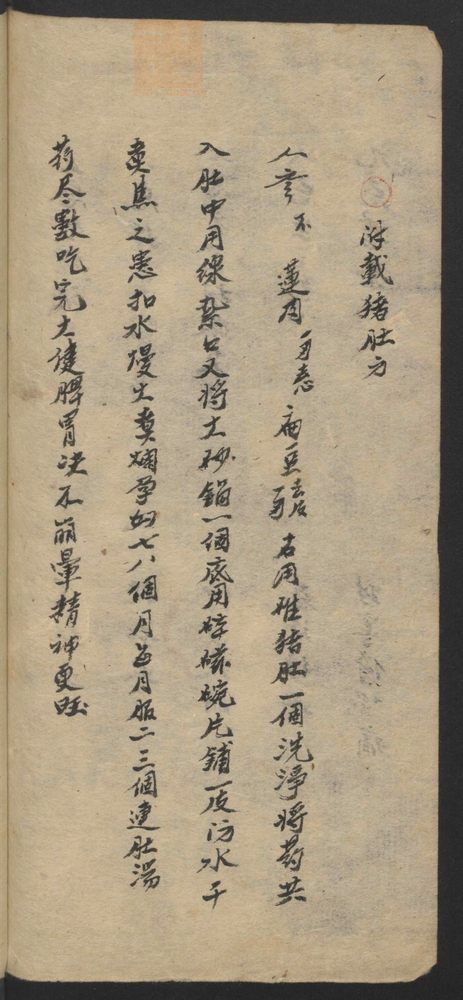 附載猪肚方
人參 蓮肉 扁豆 右用雄猪肚一個洗淨將葯共
入肚中用線紥口又將大砂鍋一個底用碎磁碗片鋪一皮防水干
煑焦之患扣水慢火煑爛孕妇七八個月每月服二三個連肚湯
葯尽數吃完大健脾胃决不崩暈精神更旺